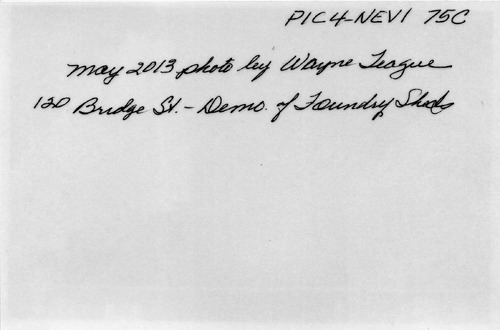 PIC4-NEVI 75C
May 2013 photo by Wayne Teague
120 Bridge St. - Demo. of Foundry Sheds